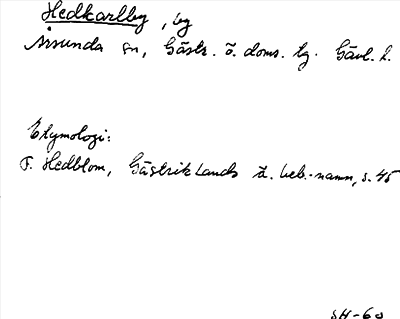 Hedkarlby, by
Årsunda sn, Gästr. ö. doms. tg. Gävl. l.
Etymologi:
F. Hedblom, Gästriklands ä. beb.-namn, s. 45
SH-60